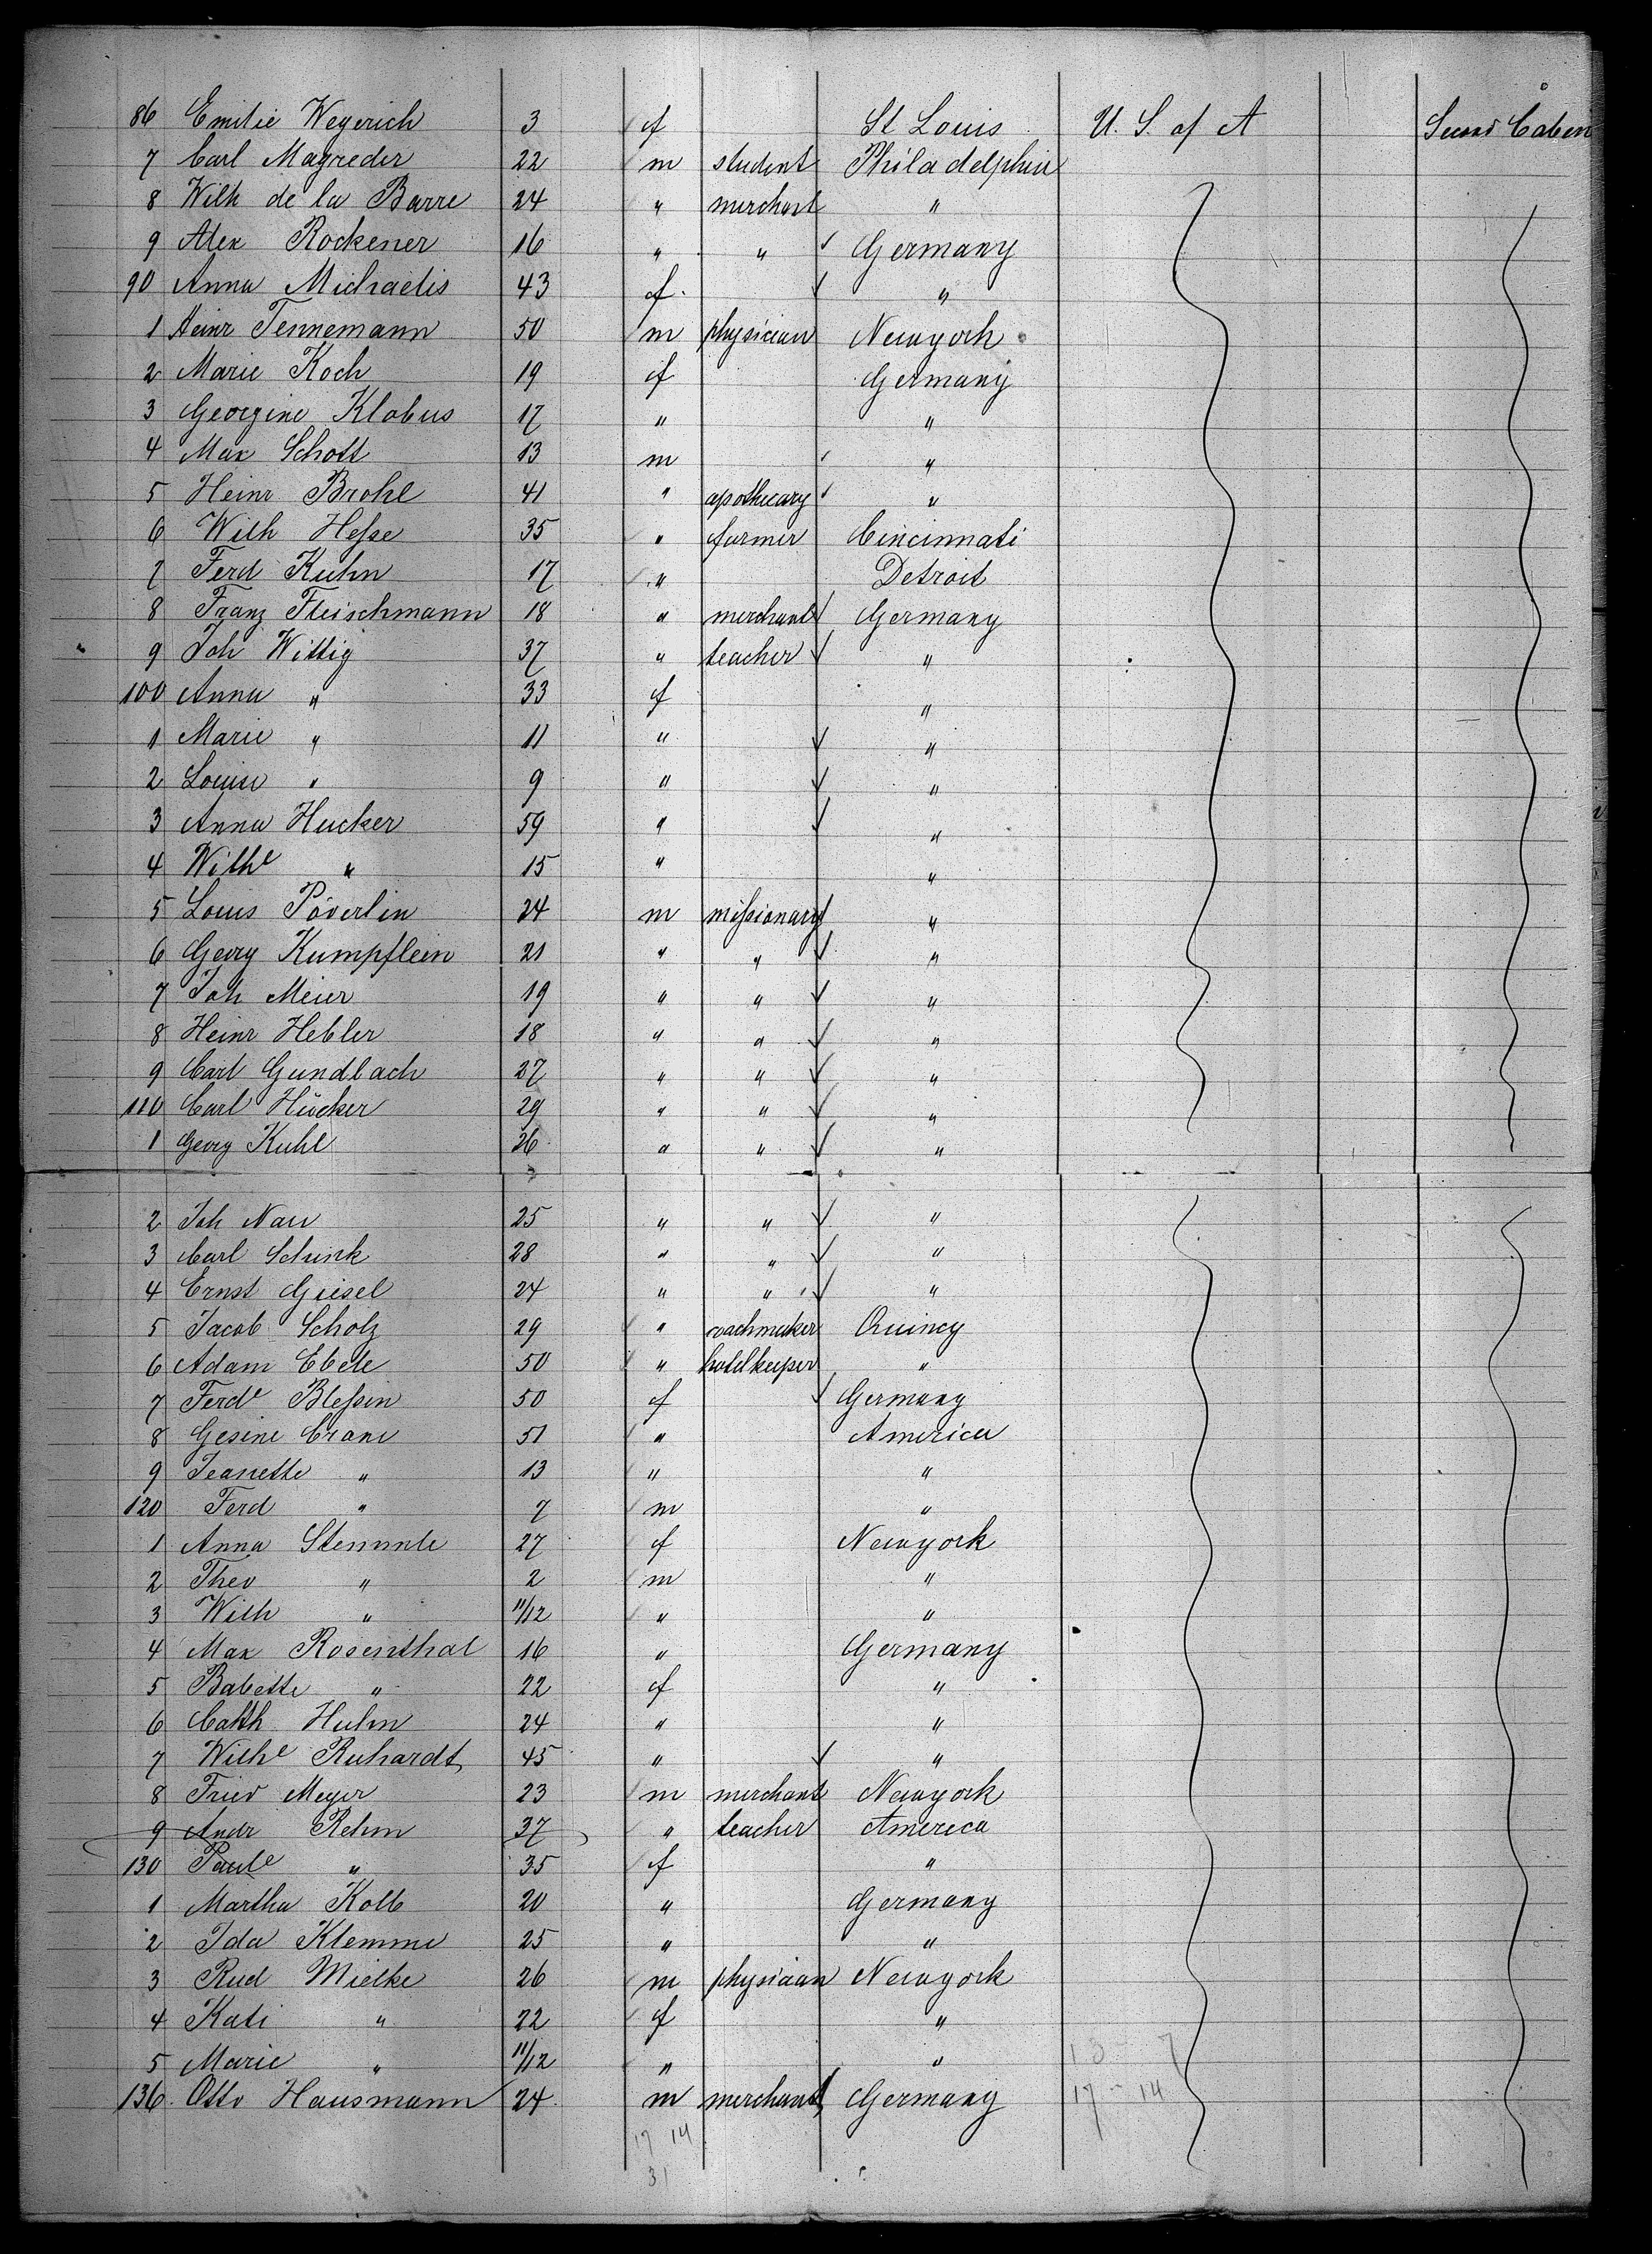 86 Emilie Wegerich 3 f St Louis U. S. of A Second Cabin
7 Carl Magreder 22 m student Philadelphia
8 Wilh de la Barre 24 " merchant "
9 Alex Rockener 16 " " Germany
90 Anna Michaelis 43 f "
1 Heinr Tennemann 50 m physician Newyork
2 Marie Koch 19 f Germany
3 Georgine Klobus 17 " "
4 Max Schott 13 m "
5 Heinr Brohl 41 " apothecary "
6 Wilh Hesse 35 " farmer Cincinnati
7 Ferd Kuhn 17 " Detroit
8 Franz Fleischmann 18 " merchant Germany
9 Joh Wittig 37 " teacher "
100 Anna " 33 f "
1 Marie " 11 " "
2 Louise " 9 " "
3 Anna Hucker 59 " "
4 Wilhe " 15 " "
5 Louis Pöverlin 24 m missionary "
6 Georg Kumpflein 21 " " "
7 Joh Meier 19 " " "
8 Heinr Hebler 18 " " "
9 Carl Gundlach 27 " " "
110 Carl Hücker 29 " " "
1 Georg Kuhl 26 " " "
2 Joh Nau 25 " " "
3 Carl Schink 28 " " "
4 Ernst Giesel 24 " " "
5 Jacob Scholz 29 " coachmaker Quincy
6 Adam Ebele 50 " hotelkeeper "
7 Ferde Blessin 50 f Germany
8 Gesine Crane 51 " America
9 Jeanette " 13 " "
120 Ferd " 7 m "
1 Anna Stemmle 27 f Newyork
2 Theo " 2 m "
3 Wilh " 11/12 " "
4 Max Rosenthal 16 " Germany
5 Babette " 22 f "
6 Cath Huhn 24 " "
7 Wilhe Ruhardt 45 " "
8 Fried Meyer 23 m merchant Newyork
9 Andr Rehm 37 " teacher America
130 Paule " 35 f "
1 Martha Kolb 20 " Germany
2 Ida Klemme 25 " "
3 Rud Mielke 26 m physician Newyork
4 Kati " 22 f "
5 Marie " 11/12 " " 13 - 7
136. Otto Hausmann 24 m merchant Germany 17 - 14
17 14
31